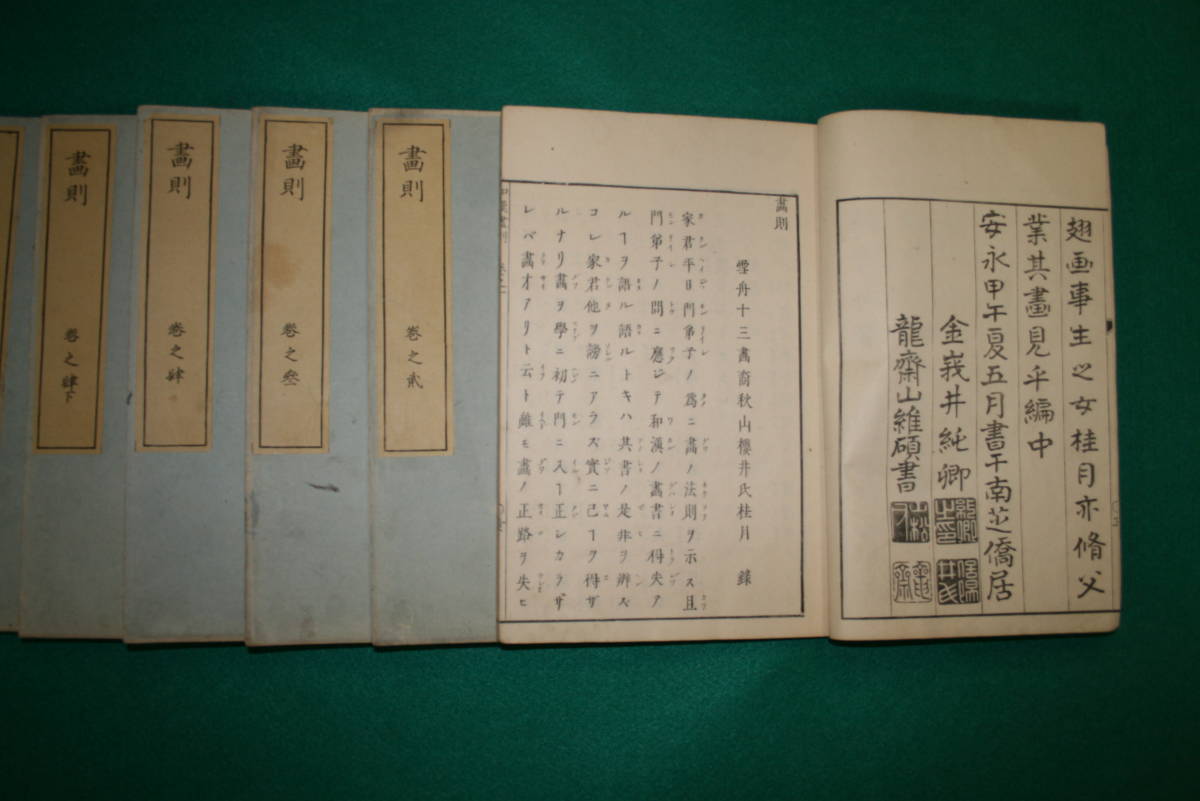 翅画事生之女桂月亦脩父
業其畫見乎編中
安永甲午夏五月書于南芝僑居
金峩井純卿
龍齋山維碩書
畫則
雪舟十三畵裔秋山櫻井氏桂月 錄
家君平日門弟子ノ爲ニ畵ノ法則ヲ示ス且
門弟子ノ問ニ應ジテ和漢ノ畵書ニ得失ア
ルヿヲ語ル語ルトキハ其書ノ是非ヲ辨ズ
コレ家君他ヲ謗ニアラズ實ニ已ヿヲ得ザ
ルナリ畵ヲ學ニ初テ門ニ入ヿ正レカラザ
レバ畵才アリト云ト雖モ畵ノ正路ヲ失ヒ
畫則
卷之貳
畫則
卷之叄
畫則
卷之肆
畫則
卷之肆下